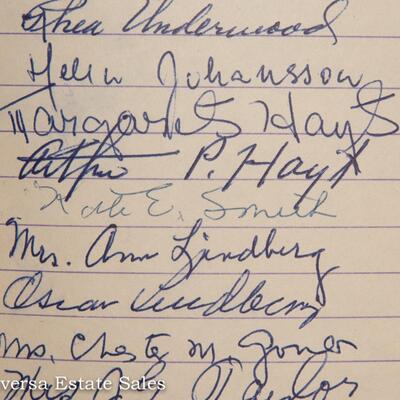 Rhea Underwood
Helen Johansson
Margaret Hayt
Arthur P. Hayt
Kate E. Smith
Mrs. Ann Lindberg
Oscar Lindberg
Mrs. Chester M.
versa Estate Sales